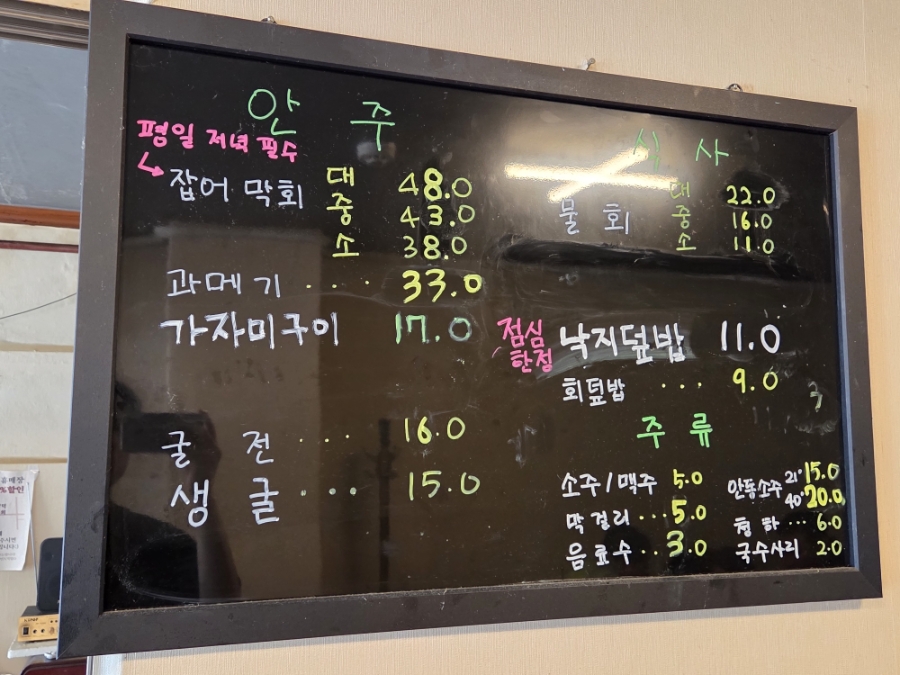 안 주
평일 저녁 필수
잡어 막회 대 48.0
중 43.0
소 38.0
과메기 .... 33.0
가자미구이 17.0
굴 전 .... 16.0
생 굴 .... 15.0
식 사
물 회 대 22.0
중 16.0
소 11.0
점심
한정
낙지덮밥 11.0
회덮밥 ... 9.0
주 류
소주/맥주 5.0
막걸리 ... 5.0
음료수 .. 3.0
안동소주 21° 15.0
40° 20.0
청하 ... 6.0
국수사리 2.0